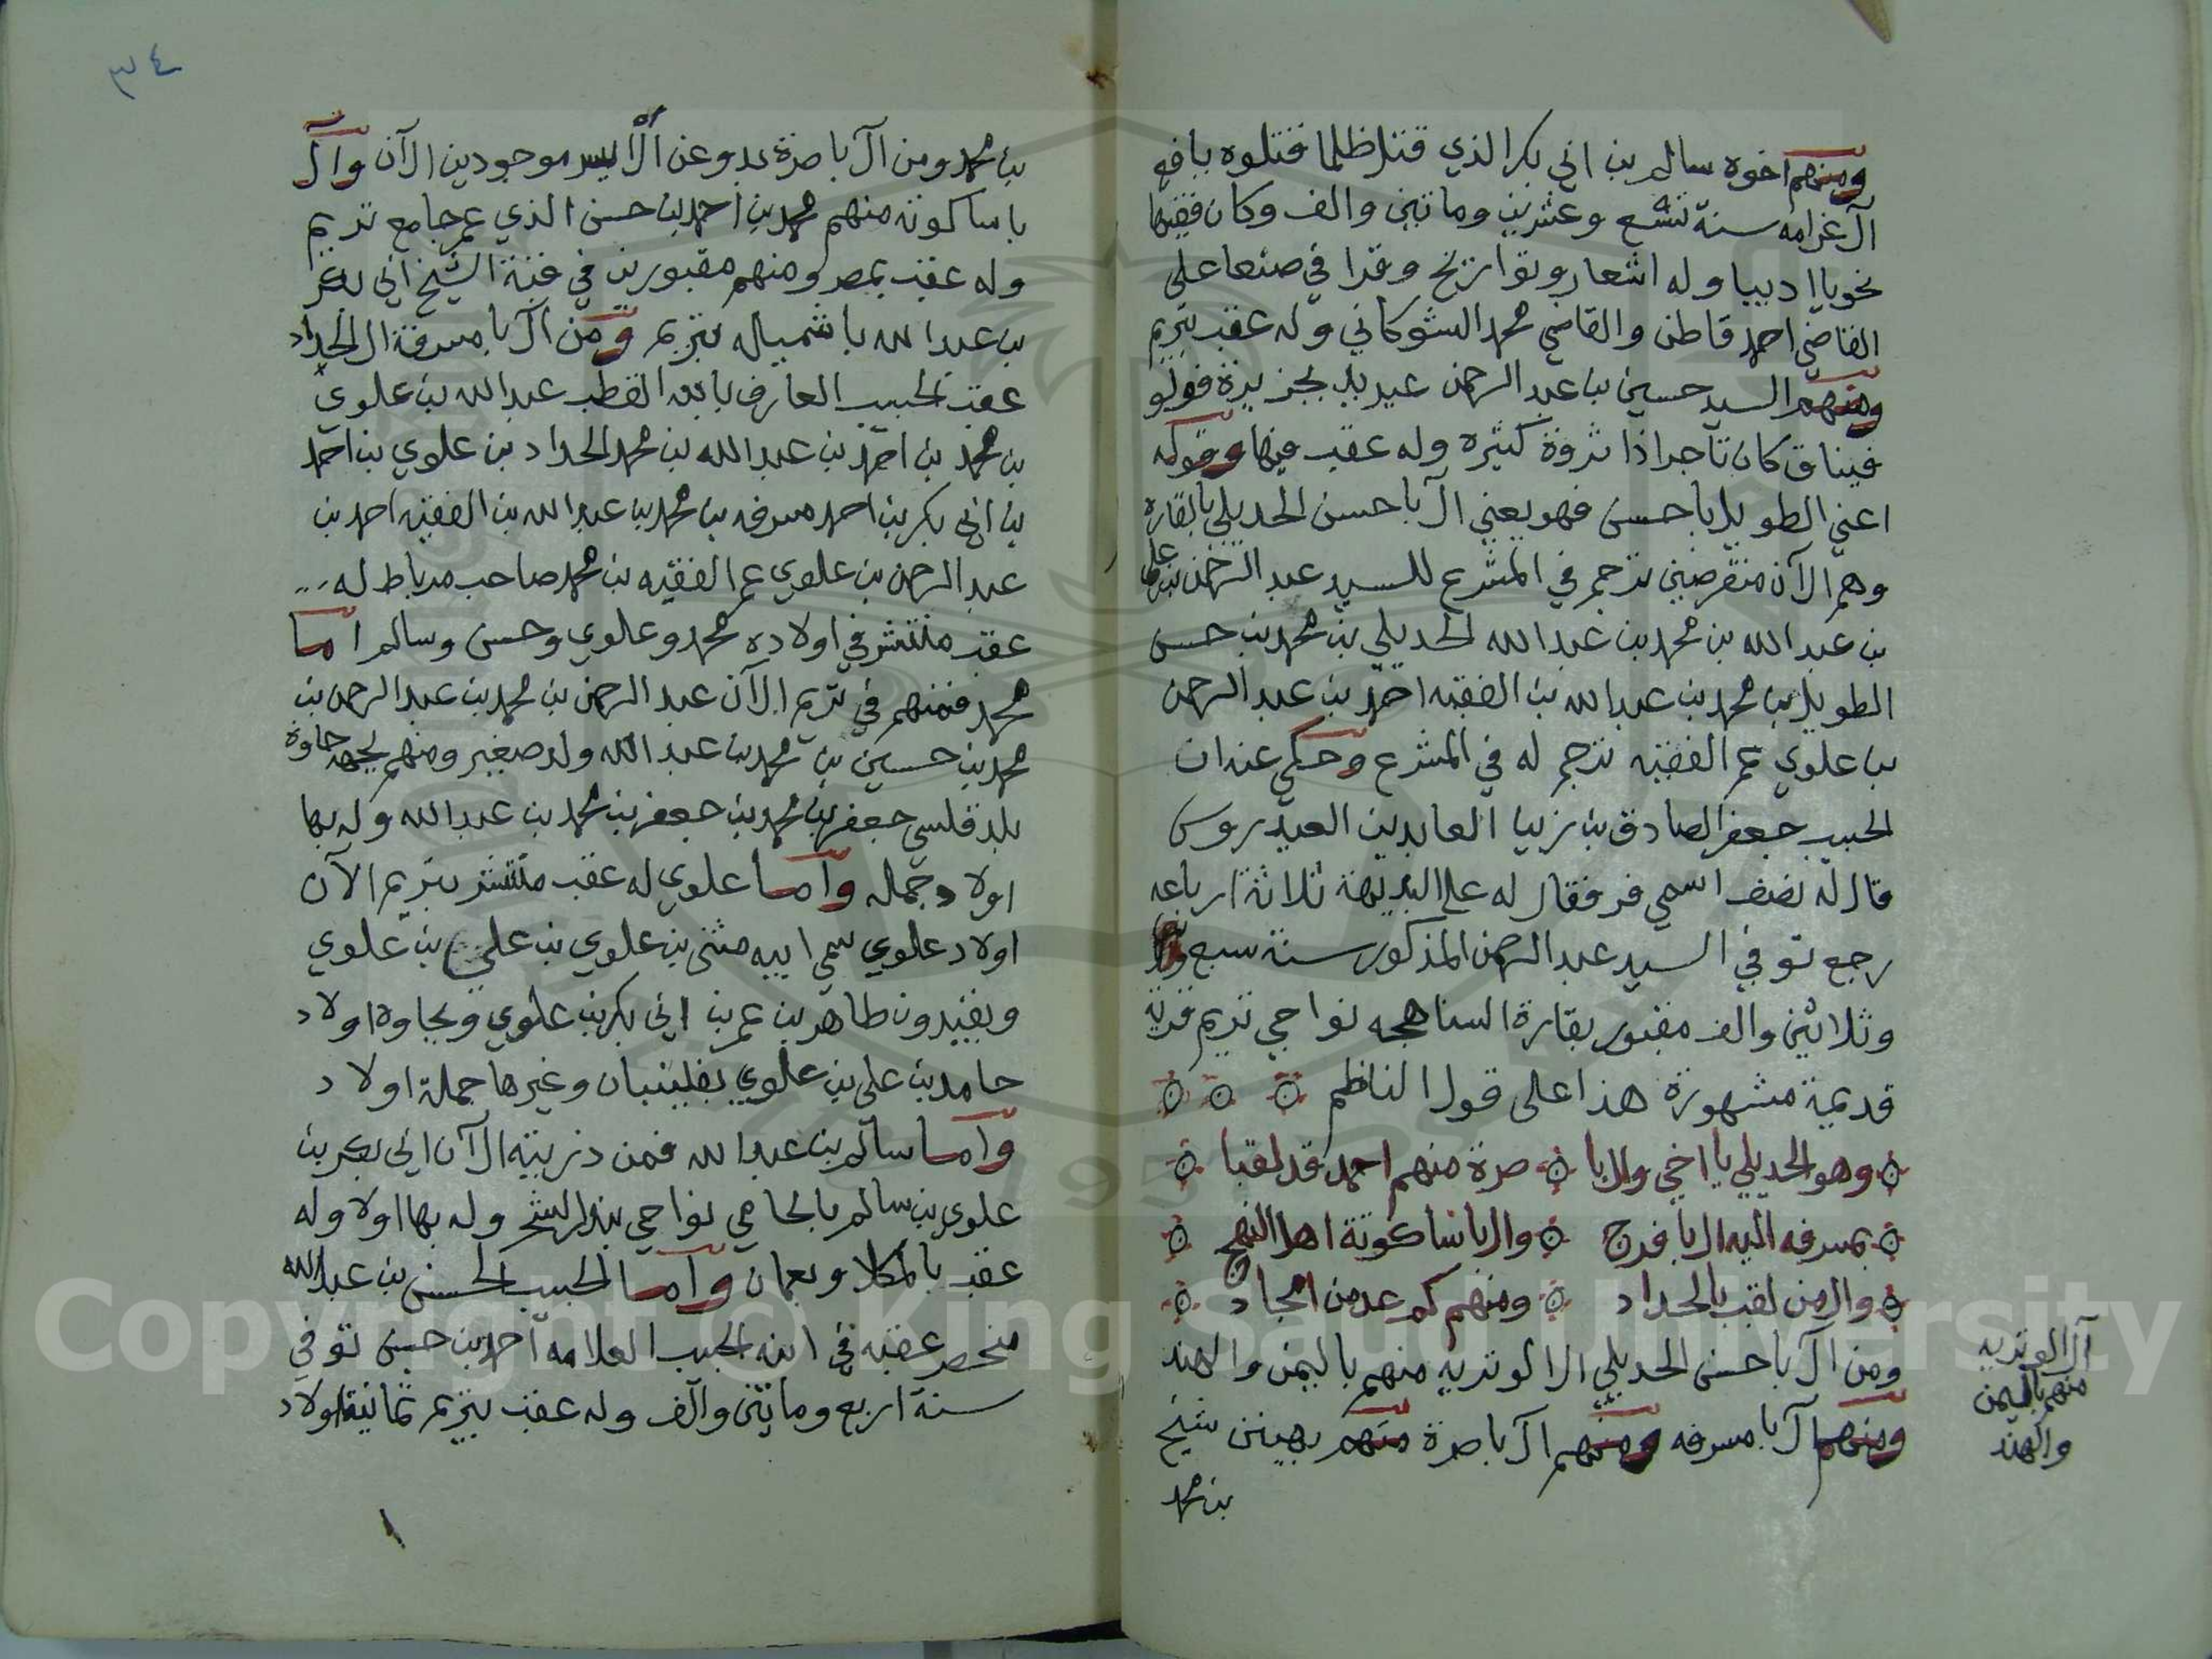 ومنهم اخوه سالم بن ابي بكر الذي قتل ظلما فقتلوه يافع
آل غرامه سنة تسع وعشرين وماتين والف وكان فقيها
نحويا اديبا وله اشعار وتواريخ وقرا في صنعا على
القاضي احمد قاطن والقاضي محمد الشوكاني وله عقب بتريم
ومنهم السيد حسين بن عبد الرحمن عيديد بجزيرة فولو
فيناق كان تاجرا ذا ثروة كثيره وله عقب فيها وقوله
اعني الطويل باحسن فهو يعني آل باحسن الحديلي بالقاره
وهم الآن منقرضين ترجم في المشرع للسيد عبد الرحمن بن علي
بن عبد الله بن محمد بن عبد الله الحديلي بن محمد بن حسن
الطويل بن محمد بن عبد الله بن الفقيه احمد بن عبد الرحمن
بن علوي عم الفقيه ترجم له في المشرع وحكي عنه ان
الحبيب جعفر الصادق بن زين العابدين العيدروس
قال له نصف اسمي فر فقال له على البديهة ثلاثة ارباعه
رجع توفي السيد عبد الرحمن المذكور سنة سبع
وثلاثين والف مقبور بقارة السناهجه نواحي تريم قرية
قديمة مشهورة هذا على قول الناظم
وهو الحديلي يا اخي وال با صرة منهم احمد قد لقبا
بمسرفه اليه ال بافرج وال باساكوتة اهل النهج
وال من لقب بالحداد ومنهم كم عد من امجاد
ومن آل باحسن الحديلي ال الوتريه منهم باليمن والهند
ومنهم آل بامسرفه ومنهم آل باصرة منهم بهينن شيخ
بن محمد
آل الوتريه
منهم باليمن
والهند
٣٤
بن محمد ومن آل باصرة بدوعن آل الايسر موجودين الآن وآل
باساكوته منهم محمد بن احمد بن حسن الذي عمر جامع تريم
وله عقب بمصر ومنهم مقبورين في قبة الشيخ ابي بكر
بن عبد الله باشميله بتريم ومن آل بامسرفة ال الحداد
عقب الحبيب العارف بالله القطب عبد الله بن علوي
بن محمد بن احمد بن عبد الله بن محمد الحداد بن علوي بن احمد
بن ابي بكر بن احمد مسرفه بن محمد بن عبد الله بن الفقيه احمد بن
عبد الرحمن بن علوي عم الفقيه بن محمد صاحب مرباط له
عقب منتشر في اولاده محمد وعلوي وحسن وسالم اما
محمد فمنهم في تريم الآن عبد الرحمن بن محمد بن عبد الرحمن بن
محمد بن حسين بن محمد بن عبد الله ولد صغير ومنهم بجهة جاوة
بلد قلسي جعفر بن محمد بن جعفر بن محمد بن عبد الله وله بها
اولاد جمله واما علوي له عقب منتشر بتريم الآن
اولاد علوي سمي ابيه مثنى بن علوي بن علي بن علوي
وبقيدون طاهر بن عمر بن ابي بكر بن علوي وبجاوة اولاد
حامد بن علي بن علوي بفلينبان وغيرها جملة اولاد
واما سالم بن عبد الله فمن ذريته الآن ابي بكر بن
علوي بن سالم بالحامي نواحي بندر الشحر وله بها اولاد وله
عقب بالمكلا وبعمان واما الحبيب الحسن بن عبد الله
منحصر عقبه في ابنه الحبيب العلامه احمد بن حسن توفي
سنة اربع وماتين والف وله عقب بتريم ثمانية اولاد
Copyright © King Saud University